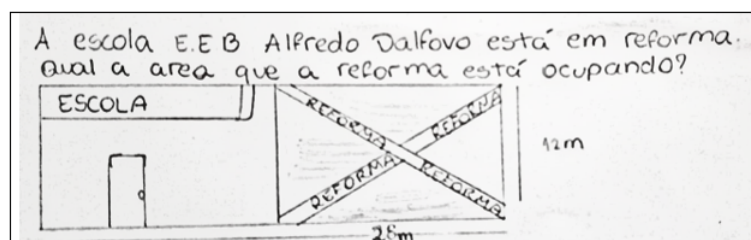 A escola E.E B Alfredo Dalfovo está em reforma.
Qual a area que a reforma está ocupando?
ESCOLA
REFORMA
REFORMA
REFORMA
REFORMA
12m
28m